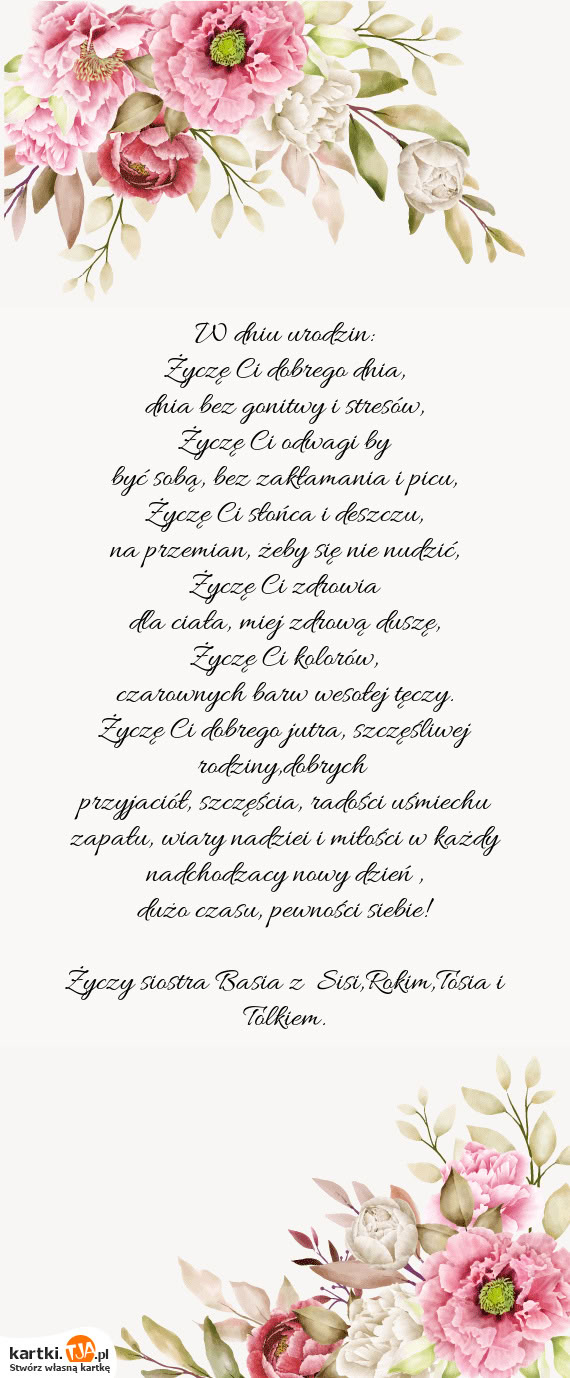 W dniu urodzin:
Życzę Ci dobrego dnia,
dnia bez gonitwy i stresów,
Życzę Ci odwagi by
być sobą, bez zakłamania i picu,
Życzę Ci słońca i deszczu,
na przemian, żeby się nie nudzić,
Życzę Ci zdrowia
dla ciała, miej zdrową duszę,
Życzę Ci kolorów,
czarownych barw wesołej tęczy.
Życzę Ci dobrego jutra, szczęśliwej
rodziny,dobrych
przyjaciół, szczęścia, radości uśmiechu
zapału, wiary nadziei i miłości w każdy
nadchodzacy nowy dzień ,
dużo czasu, pewności siebie!
Życzy siostra Basia z Sisi,Rokim,Tosia i
Tolkiem.
kartki.TJA.pl
Stwórz własną kartkę